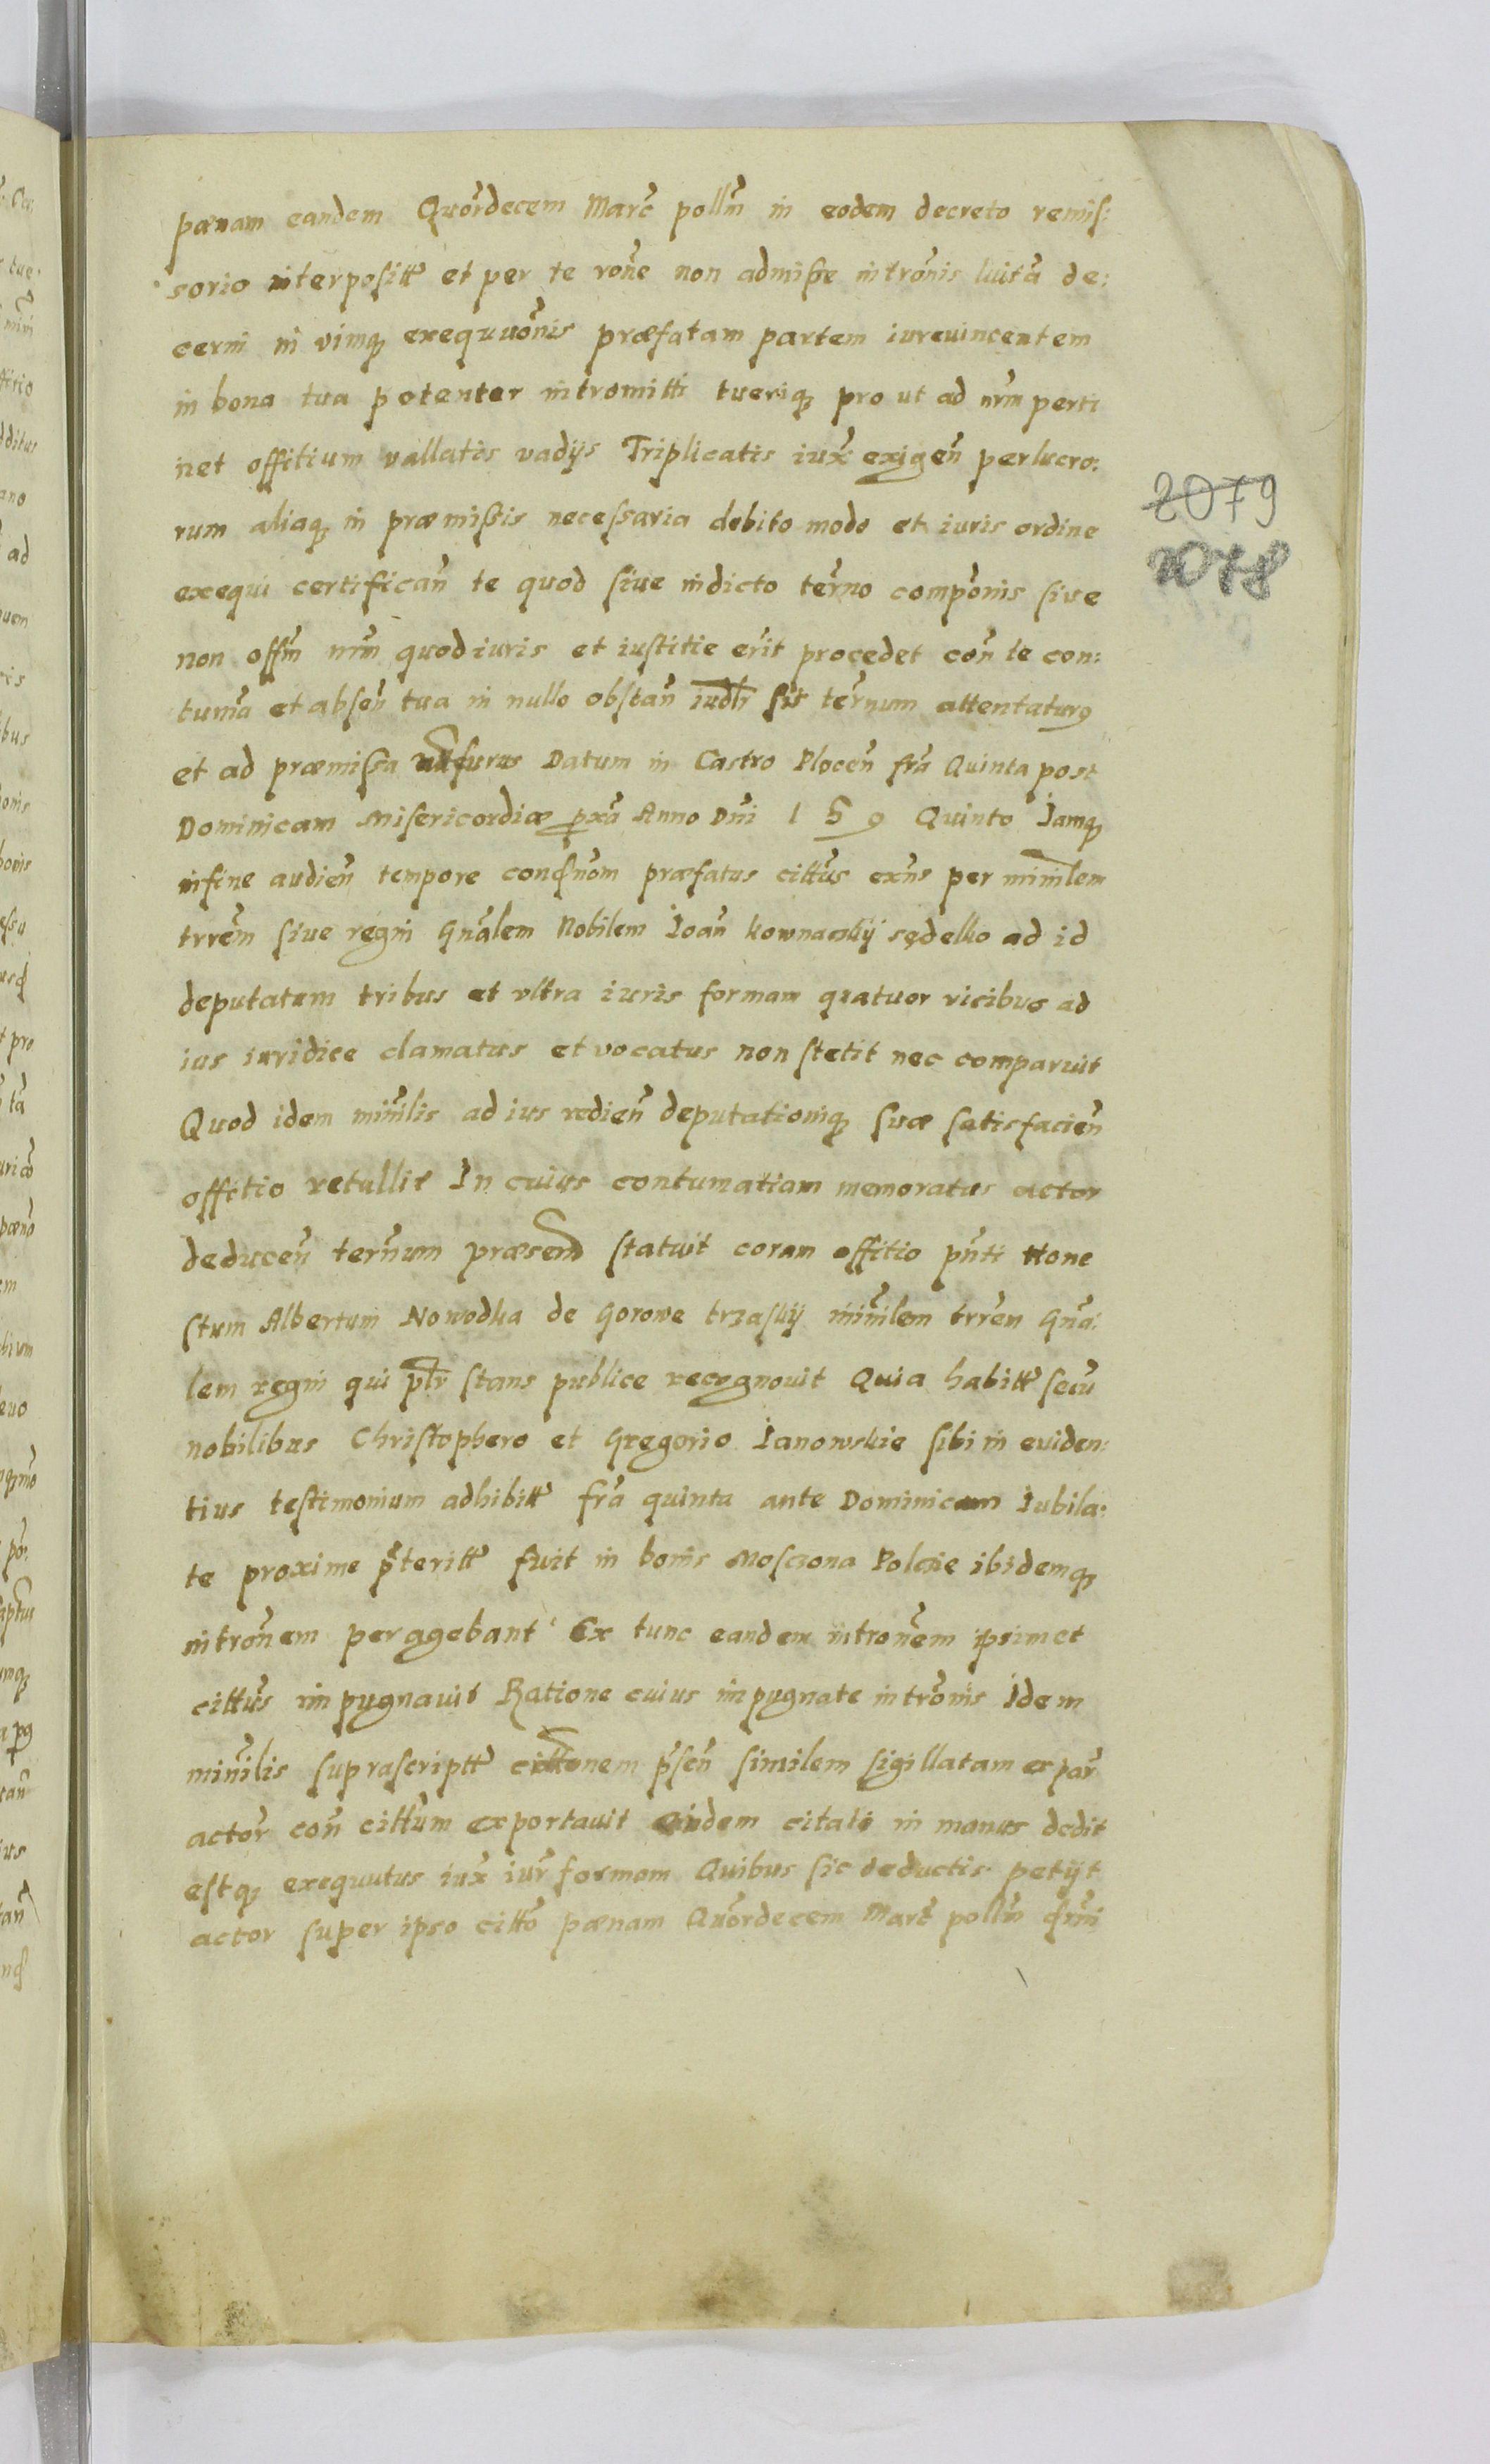 pænam eandem Quordecem Marc pollm in eodem decreto remis:
sorio interposittu et per te rone non admisse intronis luita de:
cerni in vimq exequuonis præfatam partem iureuincentem
in bona tua potenter intromitti tueriq pro ut ad nrm perti
net offitium vallatis vadijs Triplicatis iux exigen perlucro:
rum aliaq in præmissis necessaria debito modo et iuris ordine
exequi certifican te quod siue indicto terno componis siue
non offm nrm quod iuris et iustitie erit procedet con te con:
tuma et absen tua in nullo obstan iudlr sit ternum attentaturus
et ad præmissa Datum in Castro Plocen fra Quinta post
Dominicam Misericordiæ pxa Anno Dni 1 5 9 Quinto Jamq
infine audien tempore præfatus cittus exns per minilem
trrem siue regni Gnalem Nobilem Joan kownaczkij sędelko ad id
deputatum tribus et vltra iuris formam quatuor vicibus ad
ius iuridice clamatus et vocatus non stetit nec comparuit
Quod idem minilis ad ius redien deputationiq suæ satisfacien
offitio retullit In cuius contumatiam memoratus actor
deducen ternum præsem statuit coram offitio pnti Hone
stum Albertum Nowodka de Gorowe trzaskij minilem trrem Gna:
lem regni qui pltr stans publice recognouit Quia habittu secu
nobilibus Christophero et Gregorio Janowskie sibi in euiden:
tius testimonium adhibittu fra quinta ante Dominicam Jubila:
te proxime pteritt fuit in bonis Mosczona Polcxie ibidemq
intronem peragebant Ex tunc eandem intronem ipsimet
cittus impugnauit Ratione cuius impugnate intronis Idem
minilis suprascriptt cittonem psen similem sigillatam ex par
actor con cittum exportauit eidem citato in manus dedit
estq exequutus iux iur formam Quibus sic deductis petijt
actor super ipso citto pænam Quordecem Marc pollm
2079
2078